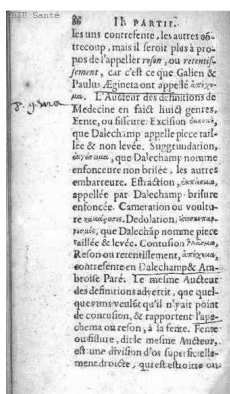 BIU Santé
86 II. PARTIE.
les uns contrefente, les autres cô-
trecoup, mais il seroit plus à pro-
pos de l'appeller reson, ou retentis-
sement, car c'est ce que Galien &
Paulus Ægineta ont appellé ἀπήχη-
μα. L'Aucteur des definitions de
Medecine en faict huict genres,
Fente, ou fissure. Excision
que Dalechamp appelle piece tail-
lée & non levée. Suggrundation,
que Dalechamp nomme
enfonceure non brisée, les autres
embarreure. Effraction,
appellée par Dalechamp brisure
enfoncée. Cameration ou voultu-
re Dedolation,
que Dalechãp nomme piece
taillée & levée. Contusion
Reson ou retentissement, ἀπήχημα,
contrefente en Dalechamp & Am-
broise Paré. Le mesme Aucteur
des definitions advertit, que quel-
ques uns veulêt qu'il n'yait point
de contusion, & rapportent l'ape-
chema ou reson, à la fente. Fente
ou fissure, dit le mesme Aucteur,
est une division d'os superficielle-
ment droicte, qui est estroitte ou